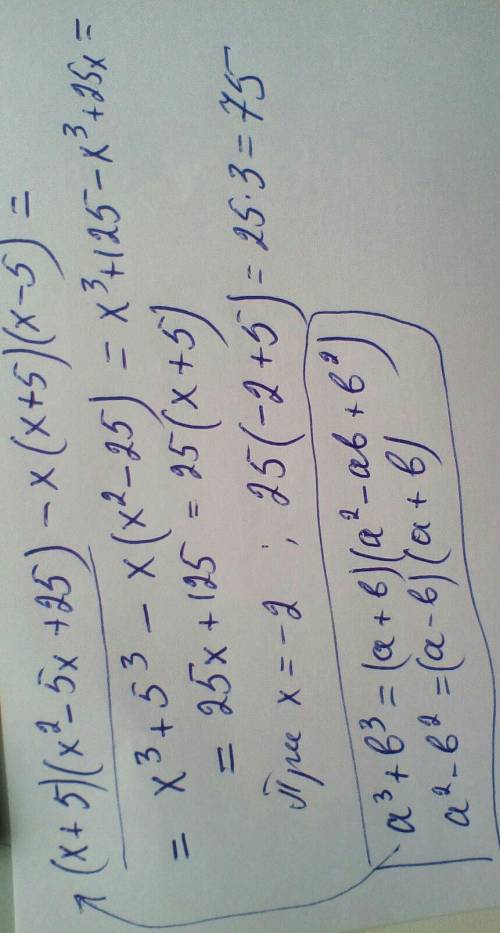 (x+5)(x²-5x+25) - x(x+5)(x-5) =
= x³+5³ - x(x²-25) = x³+125-x³+25x =
= 25x+125 = 25(x+5)
При x=-2 ; 25(-2+5) = 25·3=75
a³+b³=(a+b)(a²-ab+b²)
a²-b²=(a-b)(a+b)